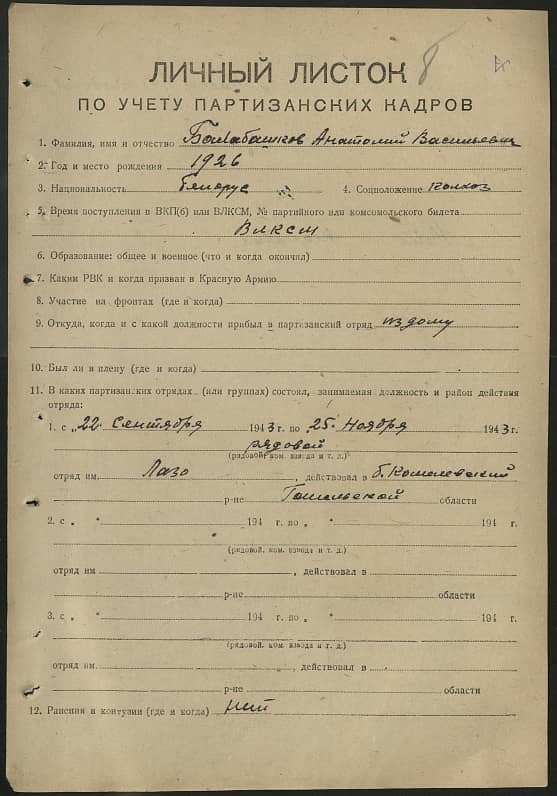 ЛИЧНЫЙ ЛИСТОК
ПО УЧЕТУ ПАРТИЗАНСКИХ КАДРОВ
1. Фамилия, имя и отчество Балабашков Анатолий Васильевич
2. Год и место рождения 1926
3. Национальность белорус 4. Соцположение колхоз
5. Время поступления в ВКП(б) или ВЛКСМ, № партийного или комсомольского билета
ВЛКСМ
6. Образование: общее и военное (что и когда окончил)
7. Каким РВК и когда призван в Красную Армию
8. Участие на фронтах (где и когда)
9. Откуда, когда и с какой должности прибыл в партизанский отряд из дому
10. Был ли в плену (где и когда)
11. В каких партизанских отрядах (или группах) состоял, занимаемая должность и район действия
отряда:
1. с „22 Сентября 1943 г. по 25 Ноября 1943 г.
рядовой
(рядовой, ком. взвода и т. д.)
отряд им. Лазо, действовал в б. Кошелевский
р-не Гомельской области
2. с „ “ 194 г. по „ “ 194 г.
(рядовой, ком. взвода и т. д.)
отряд им , действовал в
р-не области
3. с „ “ 194 г. по „ “ 194 г.
(рядовой, ком. взвода и т. д.)
отряд им. , действовал в
р-не области
12. Ранения и контузии (где и когда) нет